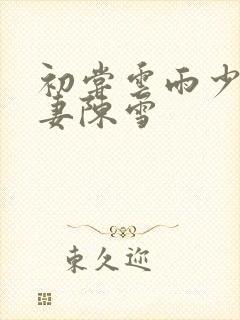 初尝云雨少
妻陈雪
东久迩